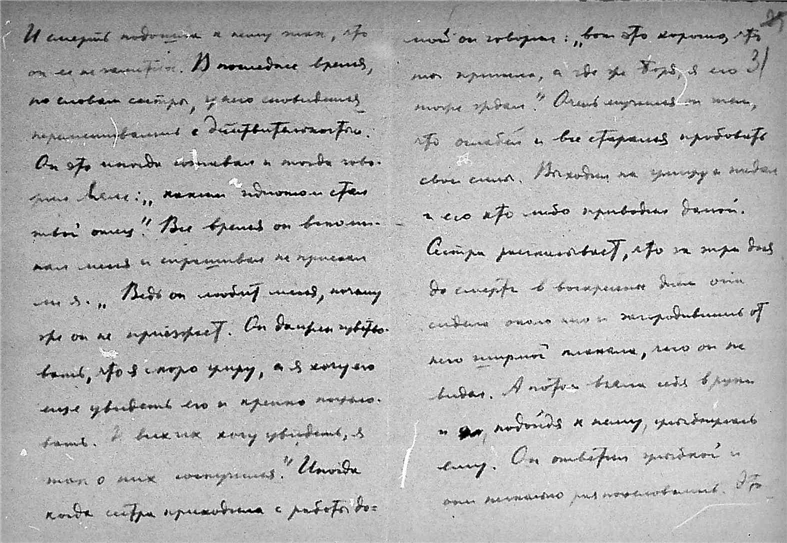 И смерть подошла к нему так, что
он ее не заметил. В последнее время,
по словам сестры, у него сновидения
перемешивались с действительностью.
Он это иногда сознавал и тогда гово-
рил : „каким идиотом стал
твой отец". Все время он вспоми-
нал меня и спрашивал не приехал
ли я. „Ведь он любит меня, почему
же он не приезжает. Он должен чувство-
вать, что я скоро умру, а я хочу его
еще увидеть его и крепко поцело-
вать. И всех их хочу увидеть, я
так о них соскучился". Иногда
когда сестра приходила с работы до-
мой он говорил: „вот это хорошо, что
ты пришла, а где же Боря, я его
тоже ждал". Очень мучился он тем,
что ослабел и все старался пробовать
свои силы. Выходил на улицу и падал
и его кто либо приводил домой.
Сестра рассказывает, что за три дня
до смерти в воскресенье днем она
сидела около него и загородившись от
него ширмой плакала, чего он не
видал. А потом взяла себя в руки
и, подойдя к нему, улыбнулась
ему. Он ответил улыбкой и
они несколько раз поцеловались. Это
31